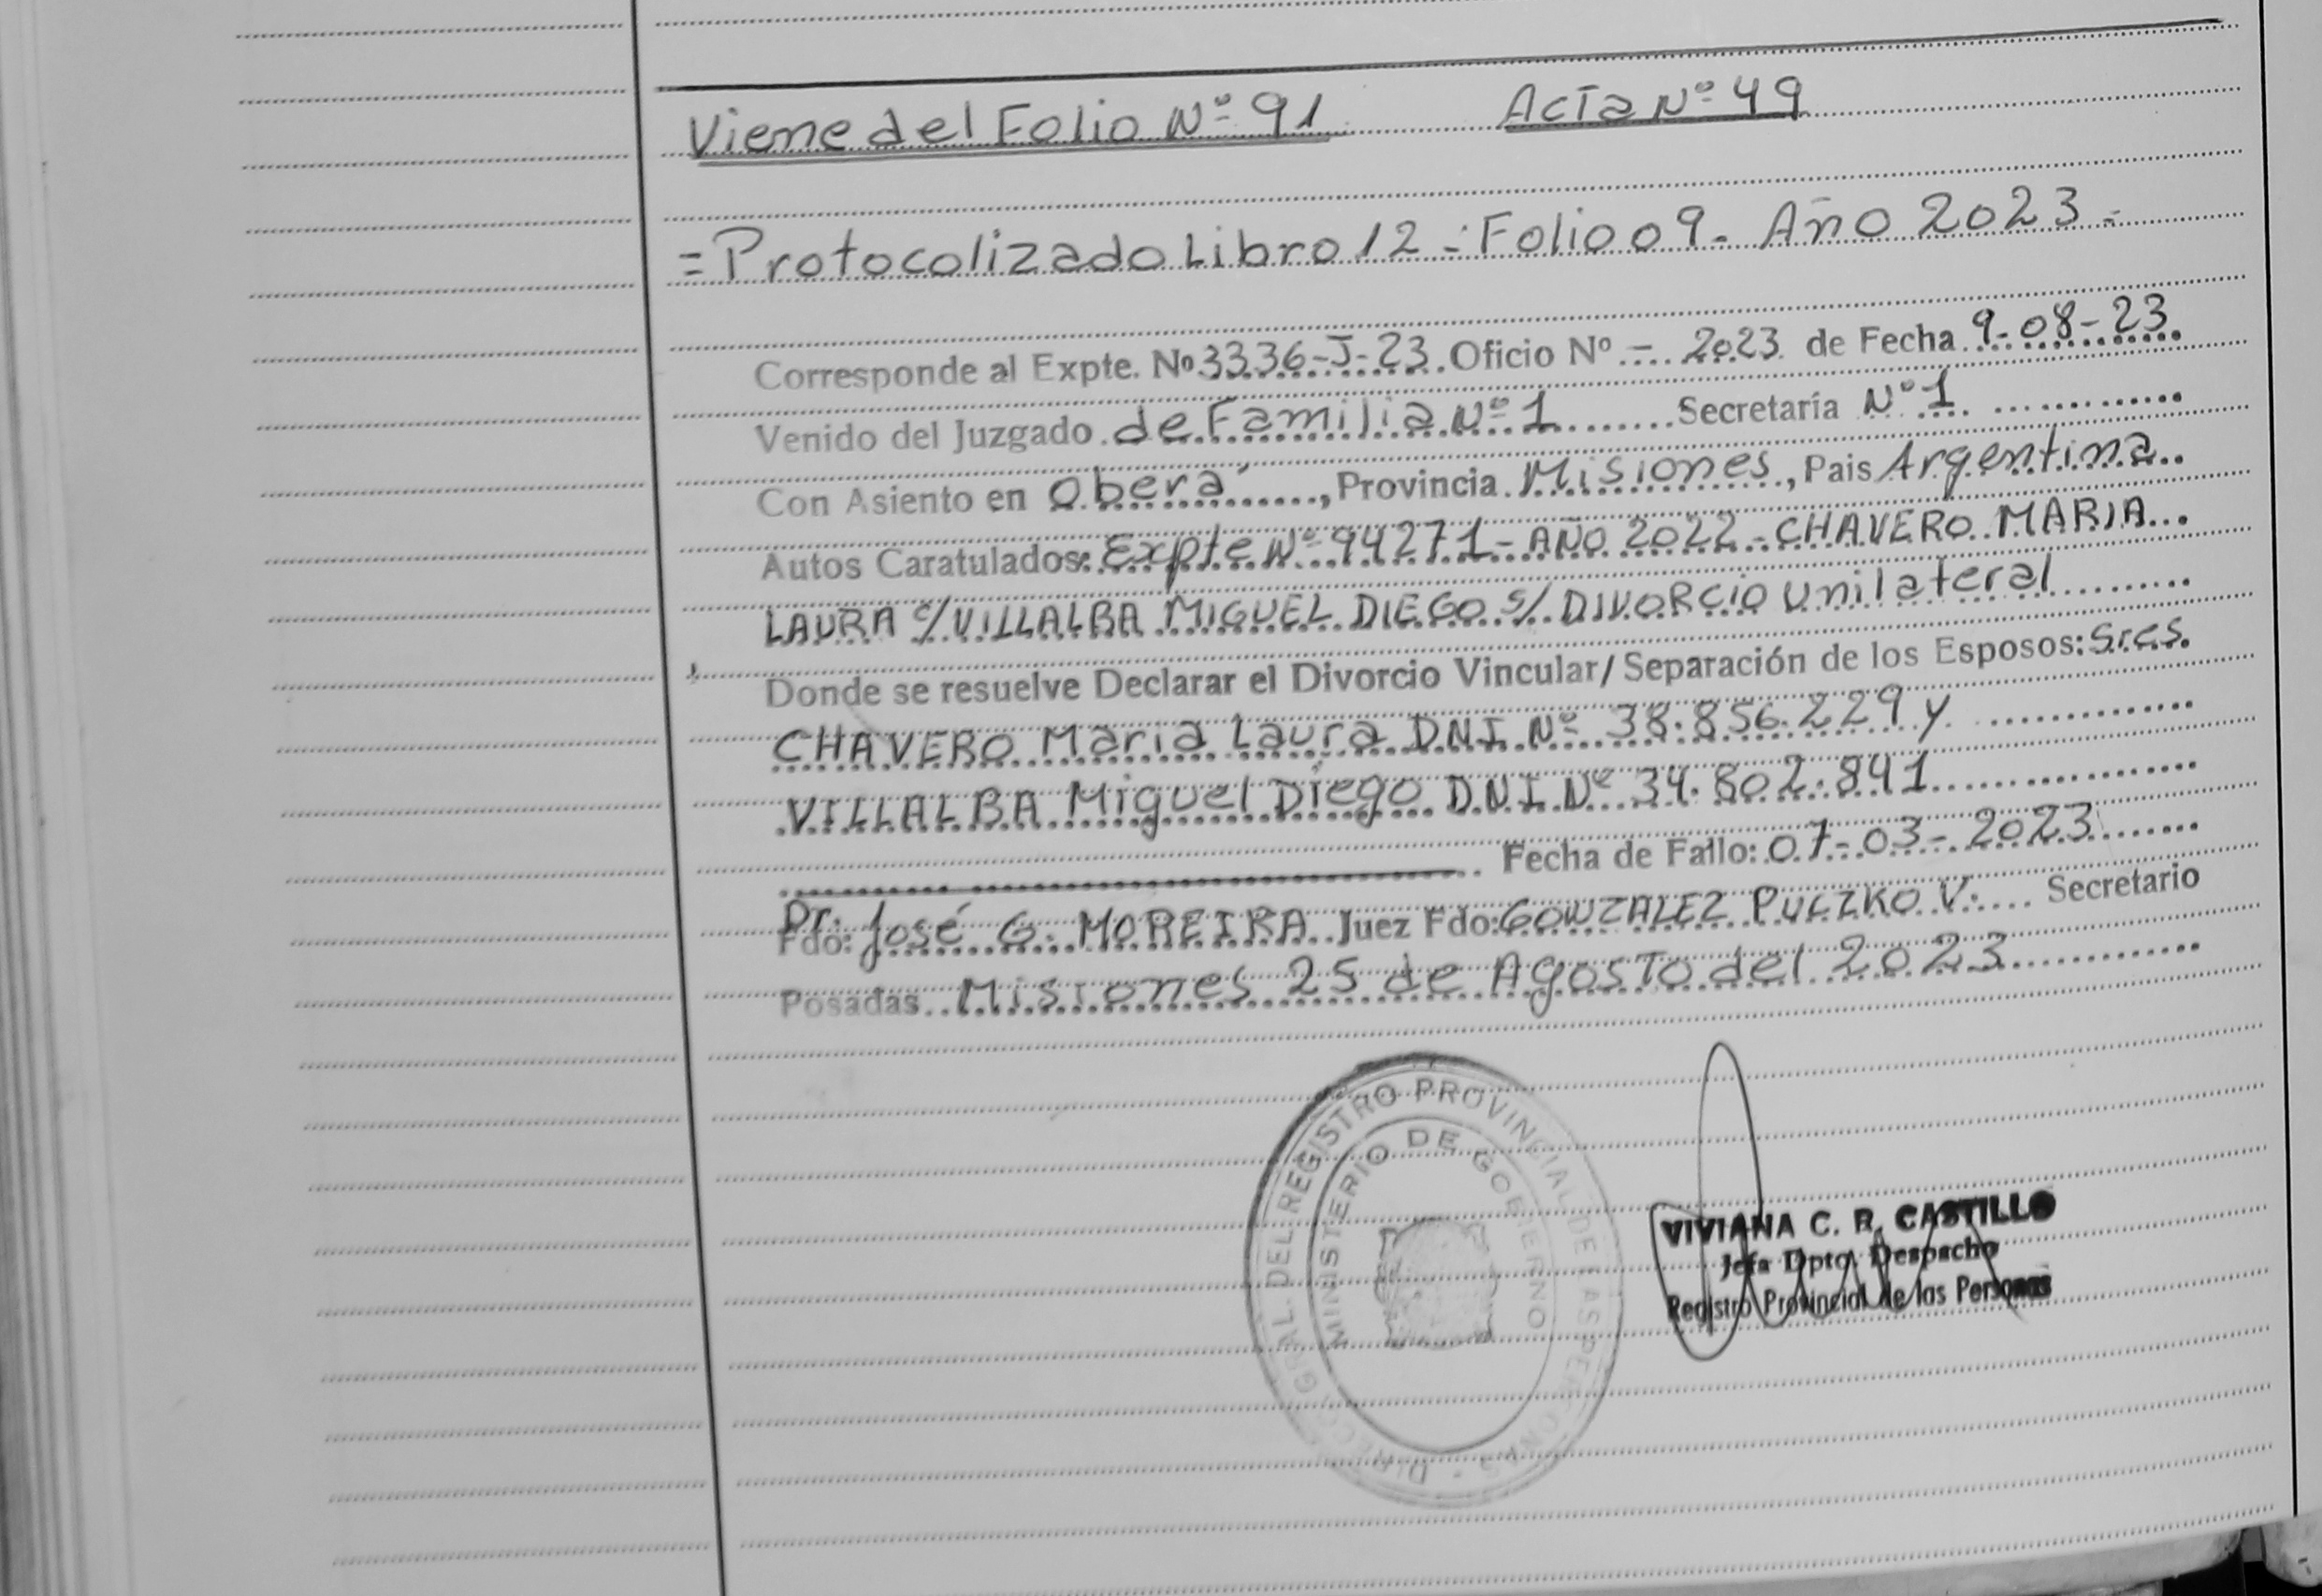 Viene del Folio Nº 91 Acta Nº 49
= Protocolizado Libro 12 -: Folio 09 - Año 2023 -
Corresponde al Expte. Nº 3336-J-23 Oficio Nº - 2023 de Fecha 9-08-23
Venido del Juzgado de Familia Nº 1 Secretaría Nº 1
Con Asiento en Oberá, Provincia Misiones, Pais Argentina
Autos Caratulados: Expte Nº 94271 - AÑO 2022 - CHAVERO MARIA
LAURA c/ VILLALBA MIGUEL DIEGO s/ DIVORCIO unilateral
Donde se resuelve Declarar el Divorcio Vincular/ Separación de los Esposos: Sres.
CHAVERO Maria Laura D.N.I. Nº 38.856.229 y
VILLALBA Miguel Diego D.N.I. Nº 34.802.841
Fecha de Fallo: 07-03-2023
Fdo: Dr. José G. MOREIRA Juez Fdo: GONZALEZ PULZKO V. Secretario
Posadas Misiones 25 de Agosto del 2023
DIRECC. GRAL. DEL REGISTRO PROVINCIAL DE LAS PERSONAS
MINISTERIO DE GOBIERNO
VIVIANA C. R. CASTILLO
Jefa Dpto. Despacho
Registro Provincial de las Personas